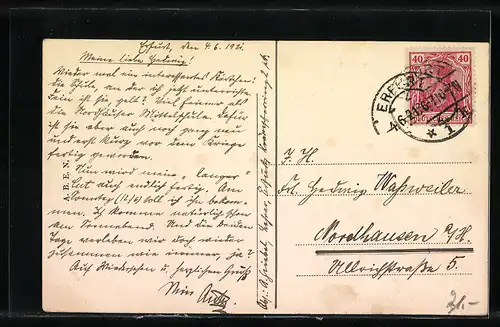 Erfurt, den 4.6.1921.
Meine liebe Hedwig!
Wieder mal ein interessantes Kärtchen:
die Schule, an der ich jetzt unterrichte.
Fein ist sie, gelt? Viel feiner als
die Nordhäuser Mittelschule. Dafür
ist sie aber auch noch ganz neu
und erst kurz vor dem Kriege
fertig geworden.
Nun wird meine "lange"
Zeit auch endlich fertig. Am
Sonntag soll ich sie bekom-
men. Ich komme natürlich schon
am Sonnabend. Und die beiden
Tage verleben wir doch wieder
zusammen wie immer, ja?
Auf Wiedersehn u. herzlichen Gruß
Dein
A.B.E.N.
40 40
ERFURT
4.6.21
* 1
Frl. Hedwig Waßweiler
Nordhausen a/H.
Ullrichstraße 5.